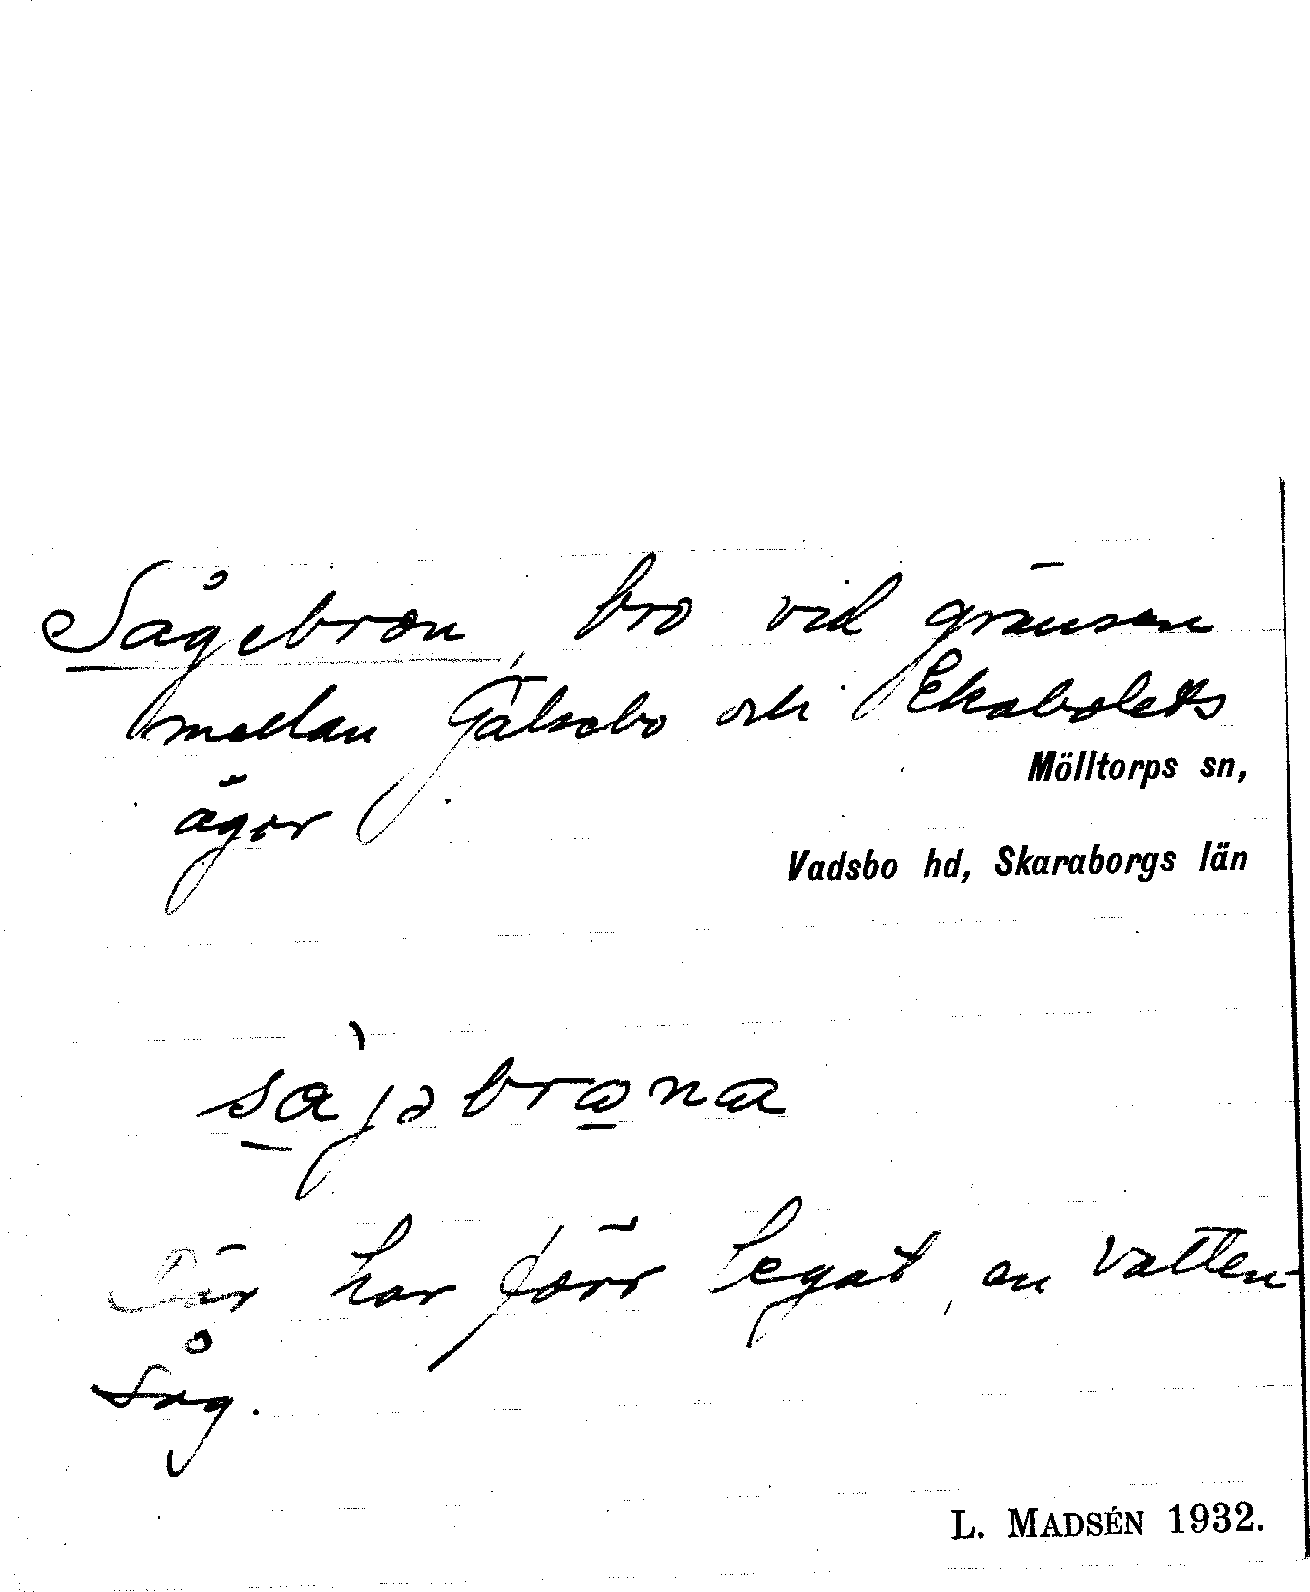 Sågebron, bro vid gränsen
mellan Gälsebo och Ekebolets
Mölltorps sn,
ägor
Vadsbo hd, Skaraborgs län
Där har förr legat en vatten-
såg.
L. MADSÉN 1932.